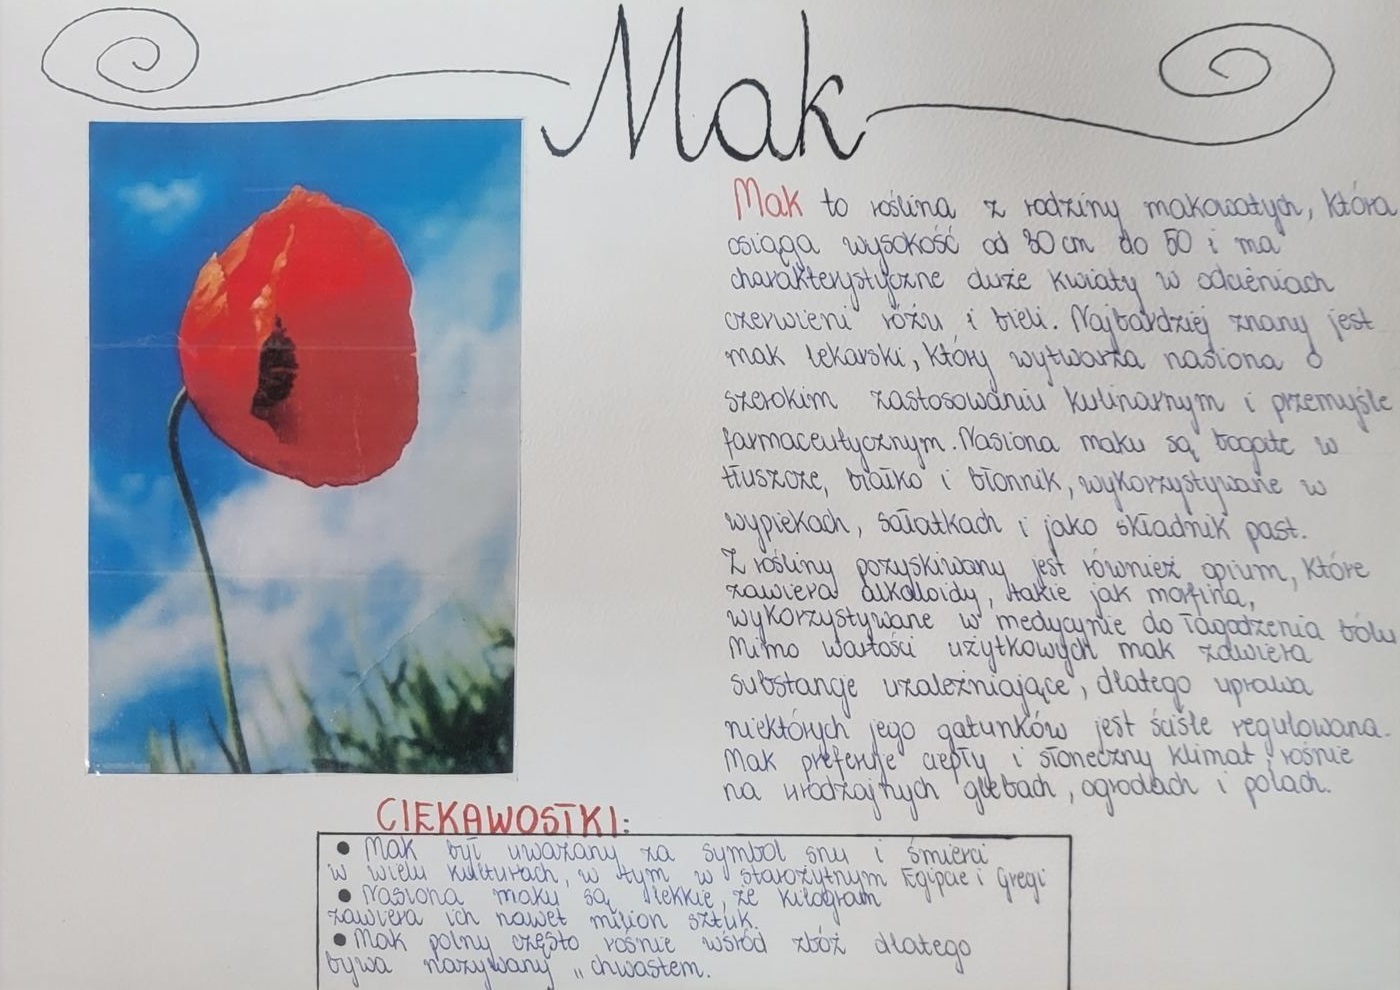 Mak
Mak to roślina z rodziny makowatych, która
osiąga wysokość od 30 cm do 50 i ma
charakterystyczne duże kwiaty w odcieniach
czerwieni różu i bieli. Najbardziej znany jest
mak lekarski, który wytwarza nasiona o
szerokim zastosowaniu kulinarnym i przemyśle
farmaceutycznym. Nasiona maku są bogate w
tłuszcze, białko i błonnik, wykorzystywane w
wypiekach, sałatkach i jako składnik past.
Z rośliny pozyskiwany jest również opium, które
zawiera alkaloidy, takie jak morfina,
wykorzystywane w medycynie do łagodzenia bólu
Mimo wartości użytkowych mak zawiera
substancje uzależniające, dlatego uprawa
niektórych jego gatunków jest ściśle regulowana.
Mak preferuje ciepły i słoneczny klimat, rośnie
na urodzajnych glebach, ogrodach i polach.
CIEKAWOSTKI:
● Mak był uważany za symbol snu i śmierci
w wielu kulturach, w tym w starożytnym Egipcie i Grecji
● Nasiona maku są lekkie, że kilogram
zawiera ich nawet milion sztuk.
● Mak polny często rośnie wśród zbóż dlatego
bywa nazywany „chwastem.